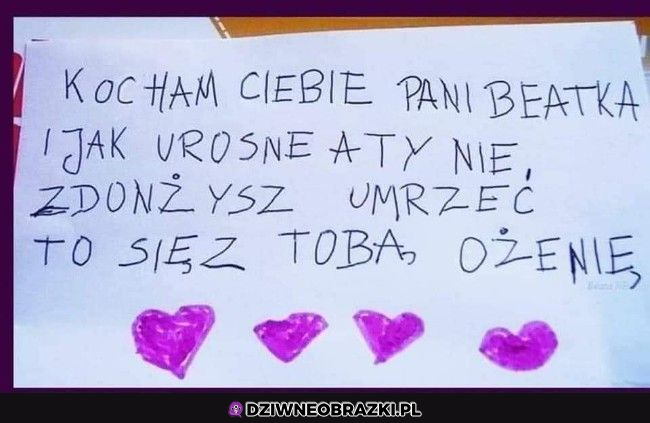 KOCHAM CIEBIE PANI BEATKA
I JAK UROSNE A TY NIE,
ZDONŻYSZ UMRZEĆ
TO SIĘ Z TOBĄ, OŻENIĘ
DZIWNEOBRAZKI.PL